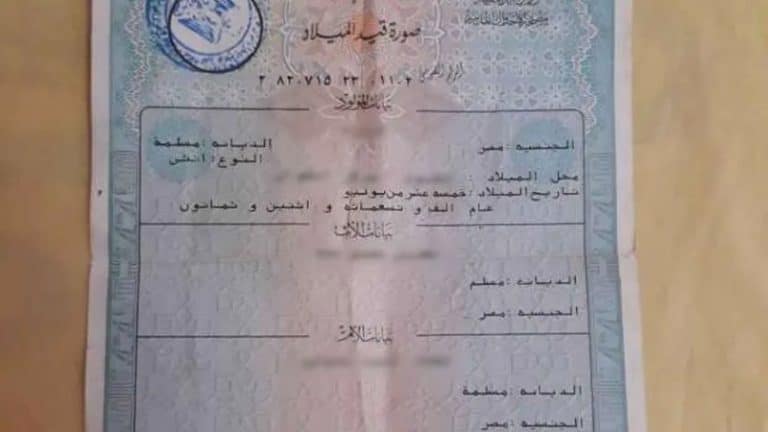 صورة قيد الميلاد
الرقم القومى
٢ ٨٢٠٧١٥ ٢٣ ١١٠٢
بيانات المولود
الجنسيه : مصر الديانه : مسلمة
النوع : انثى
محل الميلاد :
تاريخ الميلاد : خمسه عشر من يوليو
عام الف و تسعمائه و اثنين و ثمانون
بيانات الأب
الديانه : مسلم
الجنسيه : مصر
بيانات الأم
الديانه : مسلمة
الجنسيه : مصر